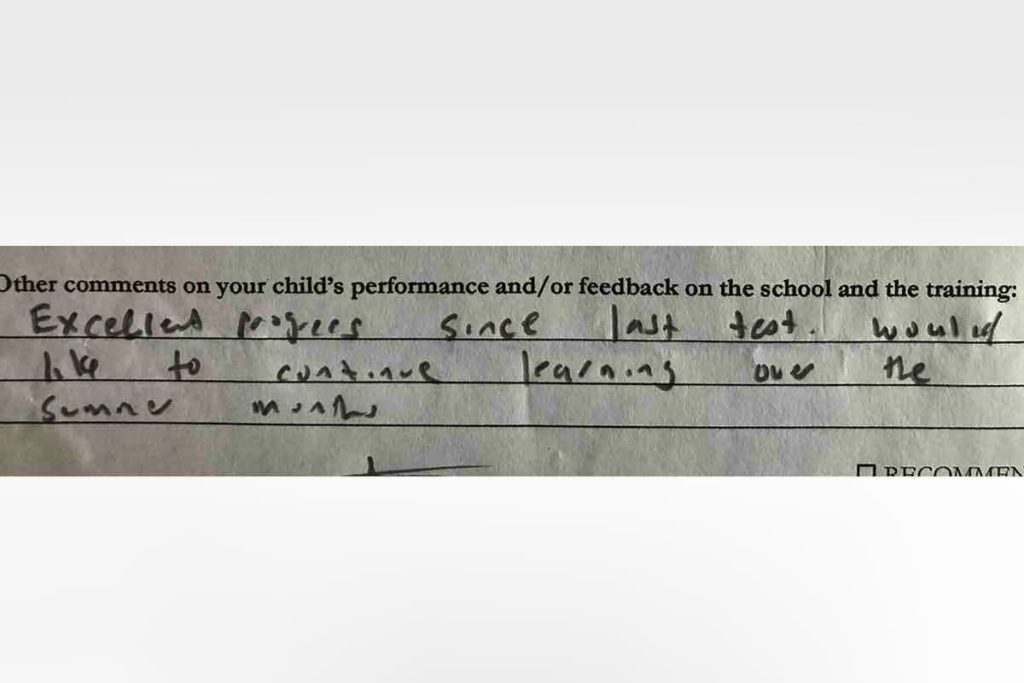 Other comments on your child's performance and/or feedback on the school and the training:
Excellent progress since last test. would
like to continue learning over the
summer months
RECOMMEN